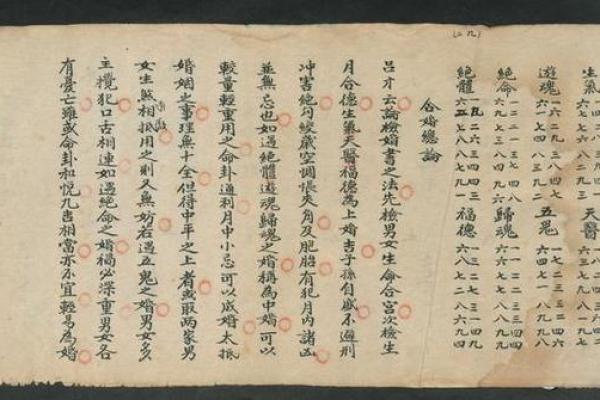 生氣 天醫
遊魂 五鬼
絕命 歸魂
絕體 福德
合婚總論
呂才云論檢婚書之法先檢男女生命合宮次檢生
月合德生氣天醫福德為上婚吉子孫自盛不避刑
冲害絕勾絞歲空調悵夾角及肥胎有犯月內諸凶
並無忌也如遇絕體遊魂歸魂之婚稱為中婚可以
較量輕重用之命卦通利月中小忌可以成婚大抵
婚姻之事理無十全但得中平之上者或取兩家男
女生煞相抵用之則又無妨若遇五鬼之婚男女多
主攪犯口舌相連如遇絕命之婚禍必深重男女各
有憂亡雖或命卦和悅九吉相當亦不宜輕易為婚